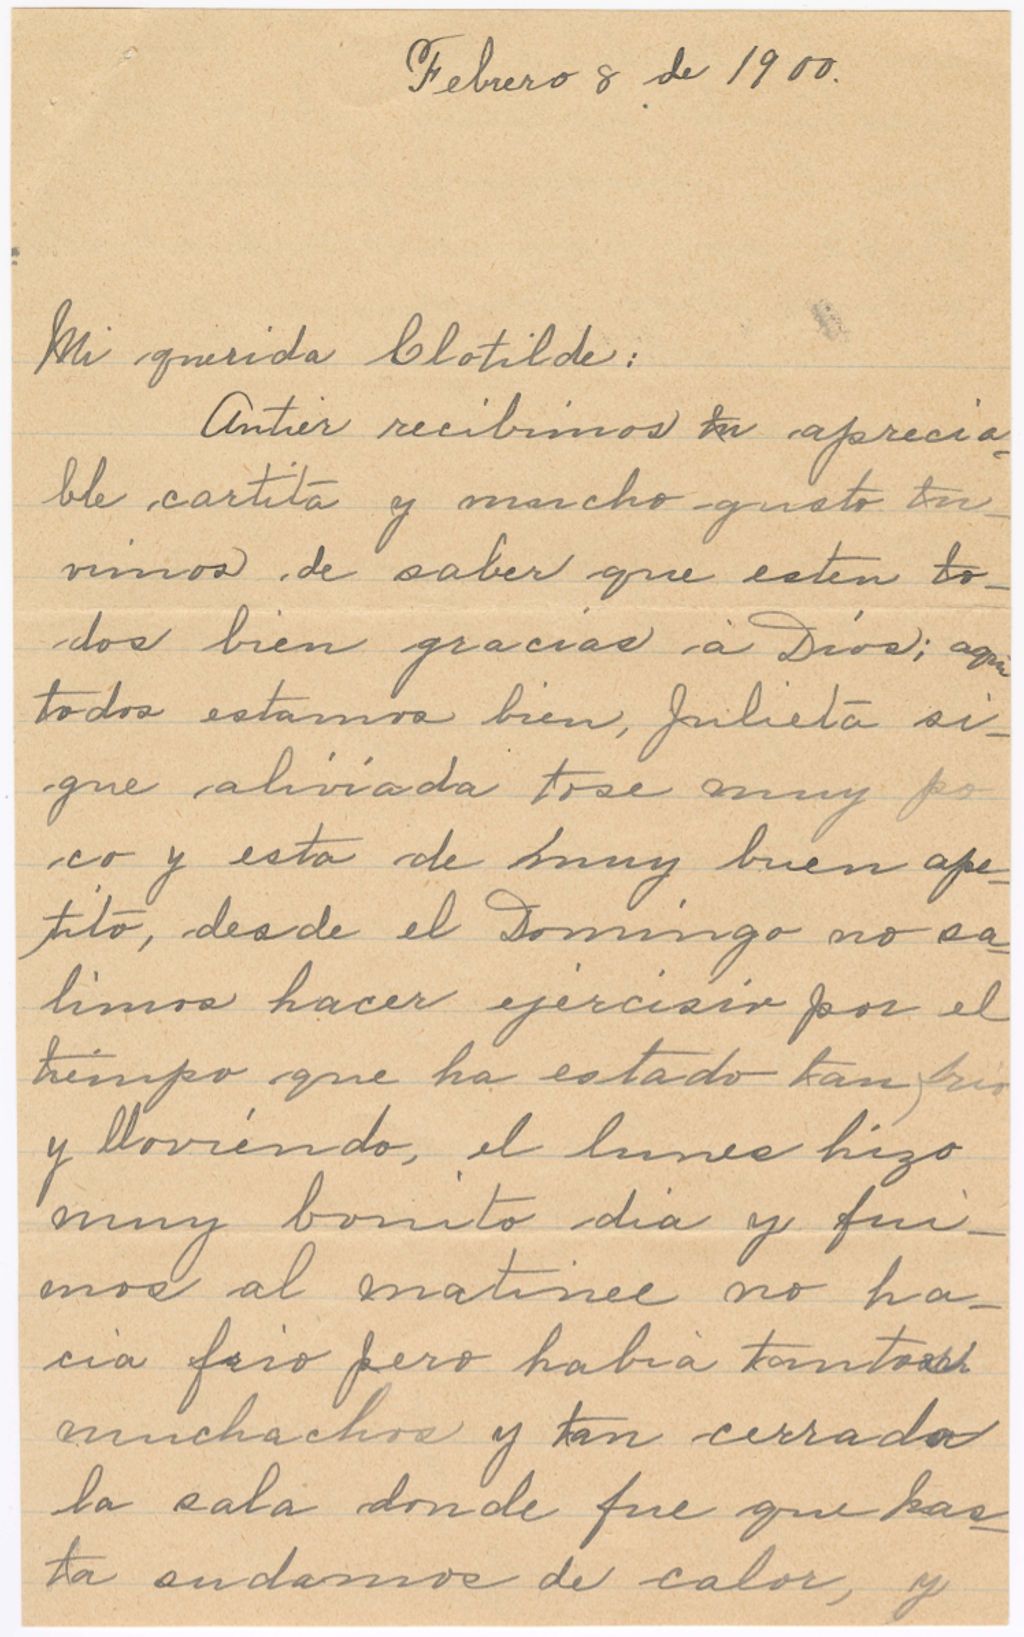 Febrero 8 de 1900.
Mi querida Clotilde:
Antier recibimos tu aprecia-
ble cartita y mucho gusto tu-
vimos de saber que esten to-
dos bien gracias á Dios; aqui
todos estamos bien, Julieta si-
gue aliviada tose muy po
co y esta de muy buen ape-
tito, desde el Domingo no sa-
limos hacer ejercisio por el
tiempo que ha estado tan frio
y lloviendo, el lunes hizo
muy bonito dia y fui-
mos al matinee no ha-
cia frio pero habia tantos
muchachos y tan cerrada
la sala donde fue que has-
ta sudamos de calor, y